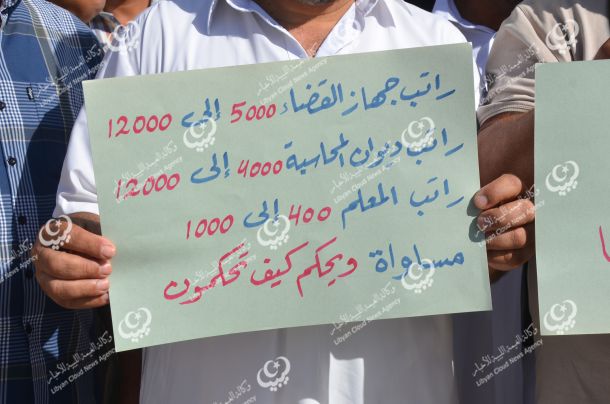 راتب جهاز القضاء 5000 إلى 12000
راتب ديوان المحاسبة 4000 إلى 12000
راتب المعلم 400 إلى 1000
مساواة ويحكم كيف تحكمون
وكالة الغيمة الليبية للأخبار
Libyan Cloud News Agency